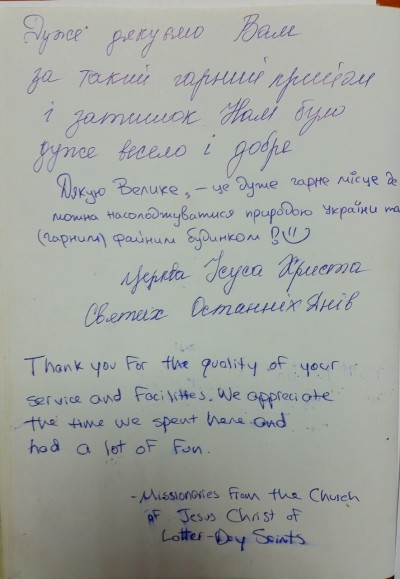 Дуже дякуємо Вам
за такий гарний прийом
і затишок Нам було
дуже весело і добре
Дякую Велике, – це дуже гарне місце де
можна насолоджуватися природою України та
(гарним) файним будинком !
Церква Ісуса Христа
Святих Останніх Днів
Thank you For the quality of your
service and Facilities. We appreciate
the time we spent here and
had a lot of Fun.
- Missionaries From the Church
of Jesus Christ of
Latter-Day Saints